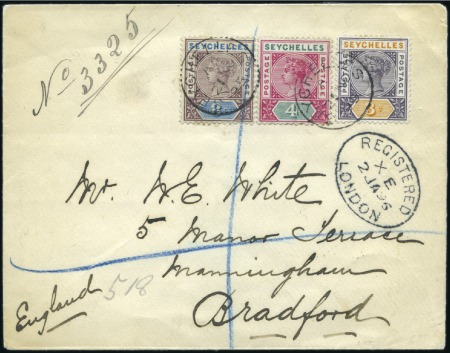 No 3325
SEYCHELLES SEYCHELLES SEYCHELLES
POSTAGE POSTAGE POSTAGE POSTAGE POSTAGE POSTAGE
4
REGISTERED
X E
2 JA 96
LONDON
Mr W.E. White
5 Manor Terrace
Manningham
Bradford
England
518